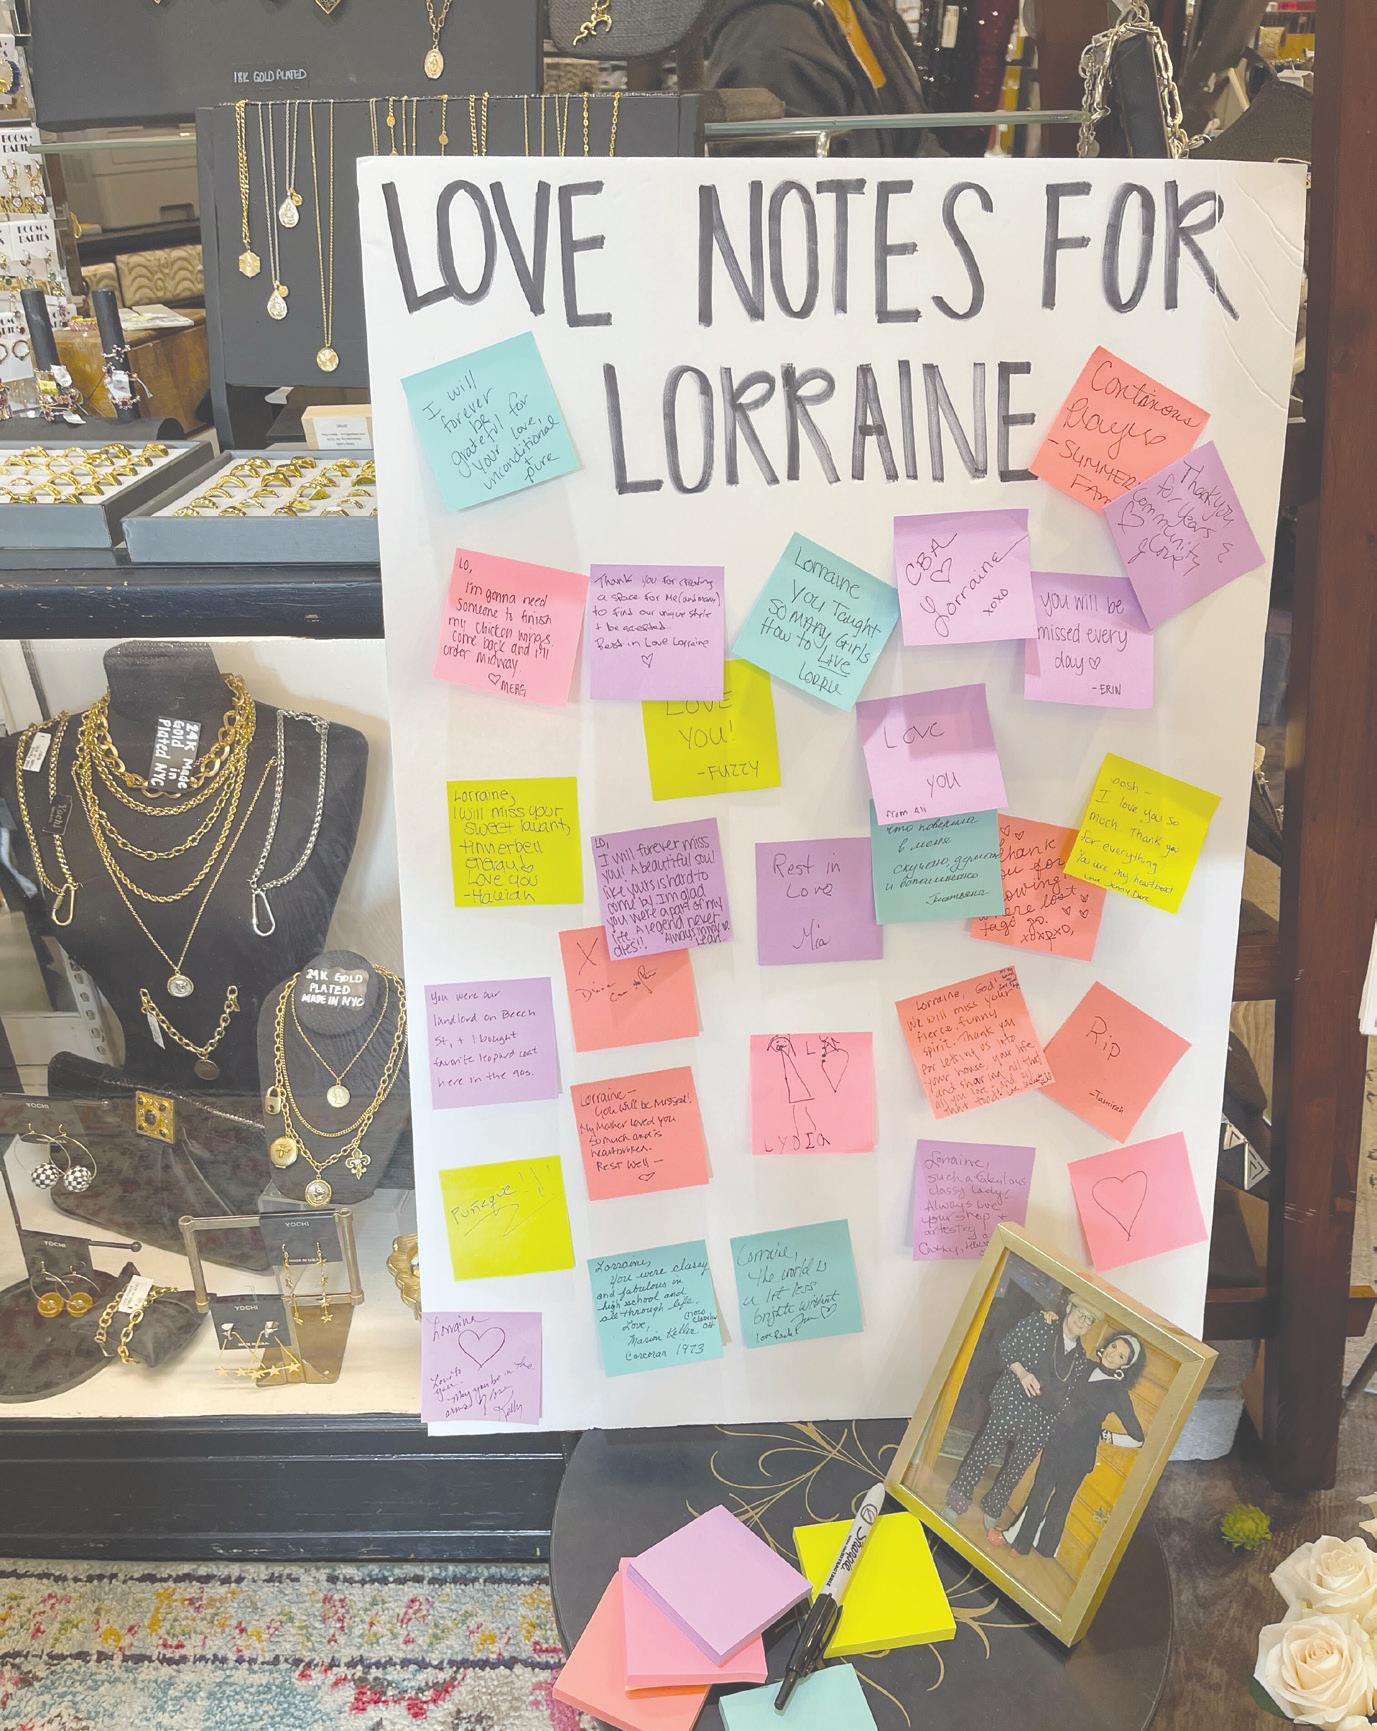 18K GOLD PLATED
LOVE NOTES FOR
LORRAINE
I will
forever
be
grateful for
your love,
unconditional
+ pure
Continous
-SUMMER
FAM
Thank you
for years
Community
& love
LO,
I'm gonna need
someone to finish
my chicken wings
come back and I'll
order midway.
♡ MERG
Thank you for creating
a space for me (and many)
to find our unique style
+ be accepted
Rest in Love Lorraine
♡
Lorraine
You Taught
So Many Girls
How to LIVE
LORRIE
CBA
♡
Lorraine
xoxo
you will be
missed every
day ♡
-ERIN
LOVE
YOU!
-FUZZY
LOVE
YOU
from Ali
Lorraine,
I will miss your
sweet
tinnerbell
energy!
Love you
LO,
I will forever miss
you! A beautiful soul
like yours is hard to
come by. I'm glad
you were a part of my
life. A legend never
dies!! Always in my
heart
Rest in
Love
Mia
что поверила
в меня
скучаю,
и
Thank
you for
showing
where lost
tags go.
xoxoxo,
I love you so
much. Thank you
for everything
You are my heartbeat
Love
X
Diane
You were our
landlord on Beech
St, + I bought
favorite leopard coat
here in the 90s.
Lorraine, God!
We will miss your
fierce, funny
spirit. Thank you
for letting us into
your house, your life
and sharing all the
RIP
-Tamirah
Lorraine —
You will be missed!
My Mother loved you
so much and is
heartbroken.
Rest Well —
♡
L
LYDIA
Lorraine,
such a fabulous
classy lady!
Always loved
your shop +
Cathy,
Lorraine,
you were classy
and fabulous in
high school and
all through life.
Love,
Marion Keller
Corcoran 1973
Lorraine,
the world is
a lot less
bright without
Lorraine
Love to
you.
May you be in the
Kelly
24K
Gold
Plated
Made
in
NYC
Yochi
24K GOLD
PLATED
MADE IN NYC
YOCHI
YOCHI
YOCHI
YOCHI
Sharpie